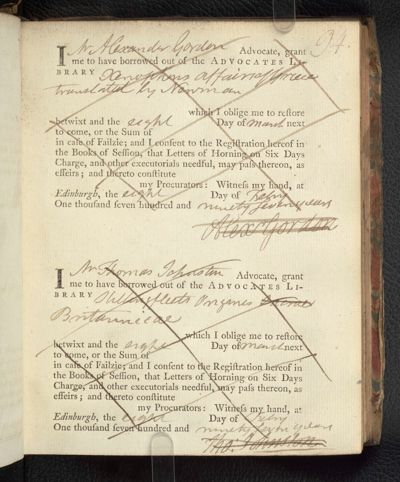 94.
I Mr Alexander Gordon Advocate, grant
me to have borrowed out of the ADVOCATES LI-
BRARY Xenophons affairs of Greece
translated by Newman
which I oblige me to reſtore
betwixt and the eight Day of March next
to come, or the Sum of
in caſe of Failzie; and I conſent to the Regiſtration hereof in
the Books of Seſſion, that Letters of Horning on Six Days
Charge, and other executorials needful, may paſs thereon, as
effeirs; and thereto conſtitute
my Procurators: Witneſs my hand, at
Edinburgh, the eight Day of Febry
One thouſand ſeven hundred and ninety seven years
Alex Gordon
I Mr Thomas Johnston Advocate, grant
me to have borrowed out of the ADVOCATES LI-
BRARY Stillingfleets Origenes
Britannicae
which I oblige me to reſtore
betwixt and the eight Day of March next
to come, or the Sum of
in caſe of Failzie; and I conſent to the Regiſtration hereof in
the Books of Seſſion, that Letters of Horning on Six Days
Charge, and other executorials needful, may paſs thereon, as
effeirs; and thereto conſtitute
my Procurators: Witneſs my hand, at
Edinburgh, the eight Day of Febry
One thouſand ſeven hundred and ninety seven years
Tho. Johnston